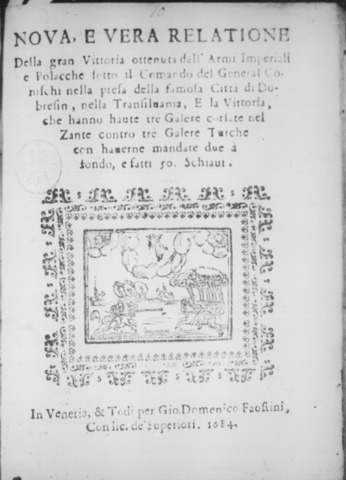 10
NOVA, E VERA RELATIONE
Della gran Vittoria ottenuta dall' Armi Imperiali
e Polacche sotto il Comando del General Co-
nischi nella presa della famosa Città di Do-
bresin, nella Transiluania, E la Vittoria,
che hanno haute trè Galere corsare nel
Zante contro trè Galere Turche
con hauerne mandate due à
fondo, e fatti 50. Schiaui.
In Venetia, & Todi per Gio. Domenico Faostini,
Con lic. de' Superiori. 1684.